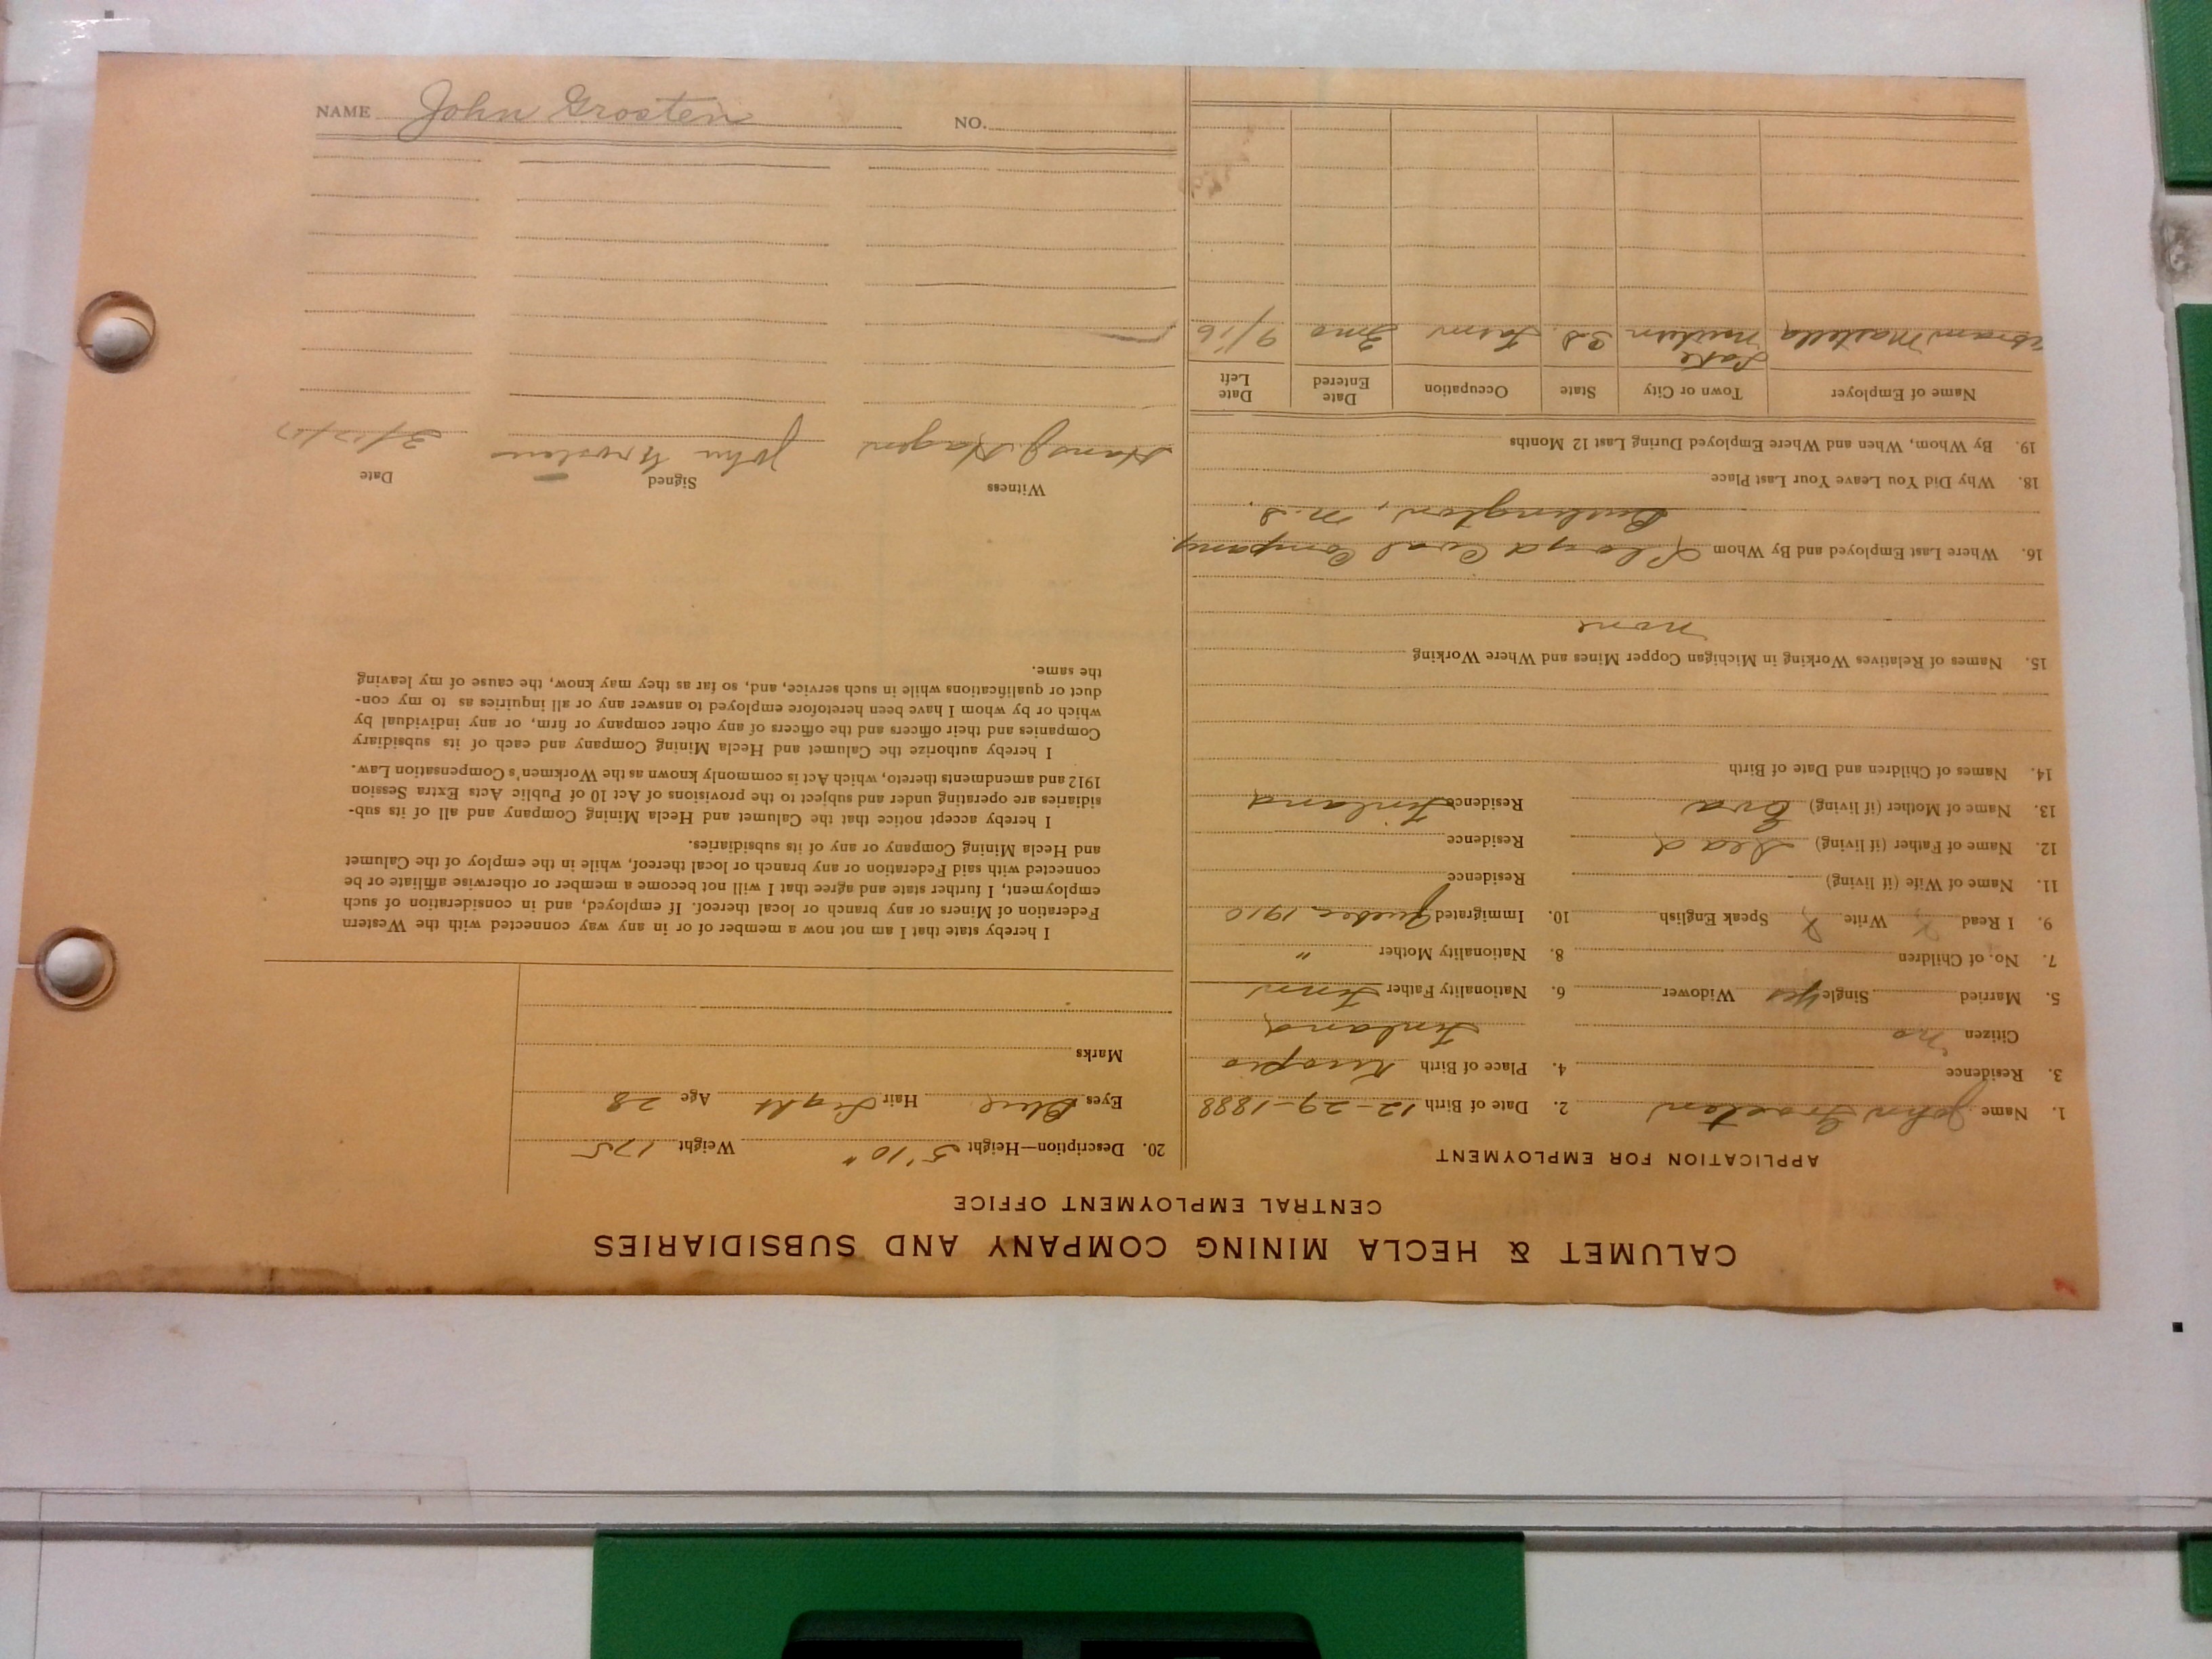 CALUMET & HECLA MINING COMPANY AND SUBSIDIARIES
CENTRAL EMPLOYMENT OFFICE
APPLICATION FOR EMPLOYMENT
1. Name John Grosten 2. Date of Birth 12-29-1888
3. Residence 4. Place of Birth Kuopio
Citizen no Finland
5. Married Single yes Widower 6. Nationality Father Finn
7. No. of Children 8. Nationality Mother "
9. I Read X Write X Speak English 10. Immigrated Quebec 1910
11. Name of Wife (if living) Residence
12. Name of Father (if living) Dead Residence
13. Name of Mother (if living) Eva Residence Finland
14. Names of Children and Date of Birth
15. Names of Relatives Working in Michigan Copper Mines and Where Working
none
16. Where Last Employed and By Whom Coal Company
18. Why Did You Leave Your Last Place
19. By Whom, When and Where Employed During Last 12 Months
Name of Employer Town or City State Occupation Date Entered Date Left
Lake
Mattella Norden S.D. Farm 3 mo 9/16
20. Description—Height 5'10" Weight 175
Eyes Blue Hair Light Age 28
Marks
I hereby state that I am not now a member of or in any way connected with the Western
Federation of Miners or any branch or local thereof. If employed, and in consideration of such
employment, I further state and agree that I will not become a member or otherwise affiliate or be
connected with said Federation or any branch or local thereof, while in the employ of the Calumet
and Hecla Mining Company or any of its subsidiaries.
I hereby accept notice that the Calumet and Hecla Mining Company and all of its sub-
sidiaries are operating under and subject to the provisions of Act 10 of Public Acts Extra Session
1912 and amendments thereto, which Act is commonly known as the Workmen's Compensation Law.
I hereby authorize the Calumet and Hecla Mining Company and each of its subsidiary
Companies and their officers and the officers of any other company or firm, or any individual by
which or by whom I have been heretofore employed to answer any or all inquiries as to my con-
duct or qualifications while in such service, and, so far as they may know, the cause of my leaving
the same.
Witness Signed Date
Hans J. Hagen John Grosten 3/12/17
NAME John Grosten NO.